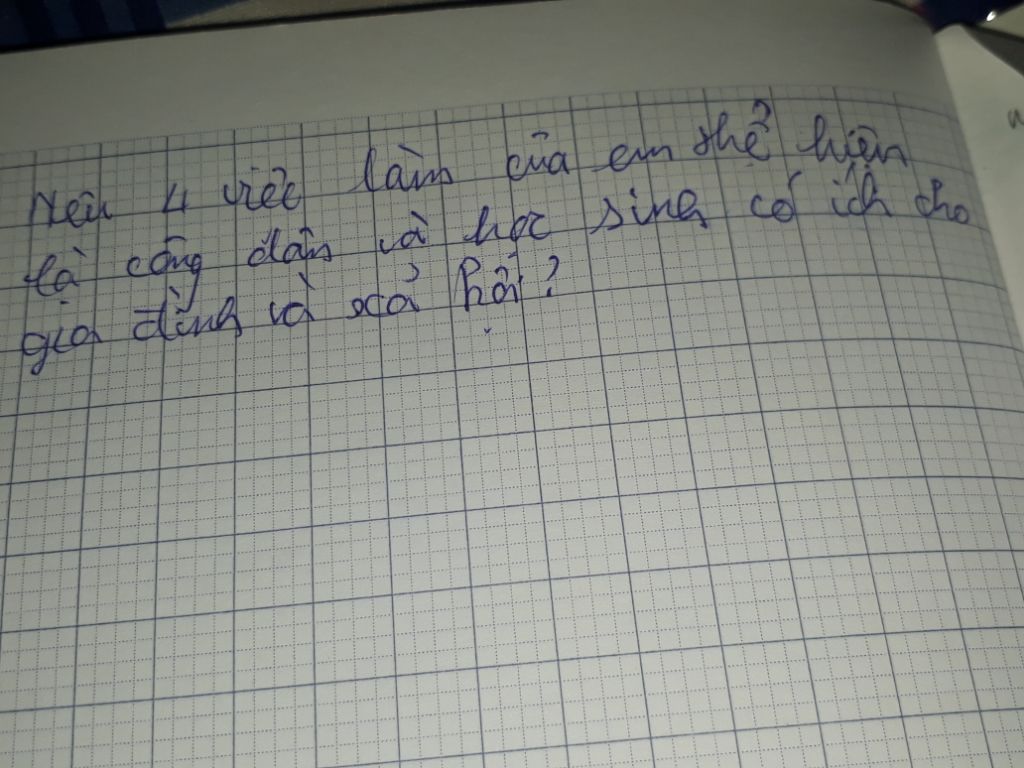 Nêu 4 việc làm của em thể hiện
là công dân và học sinh có ích cho
gia đình và xã hội?